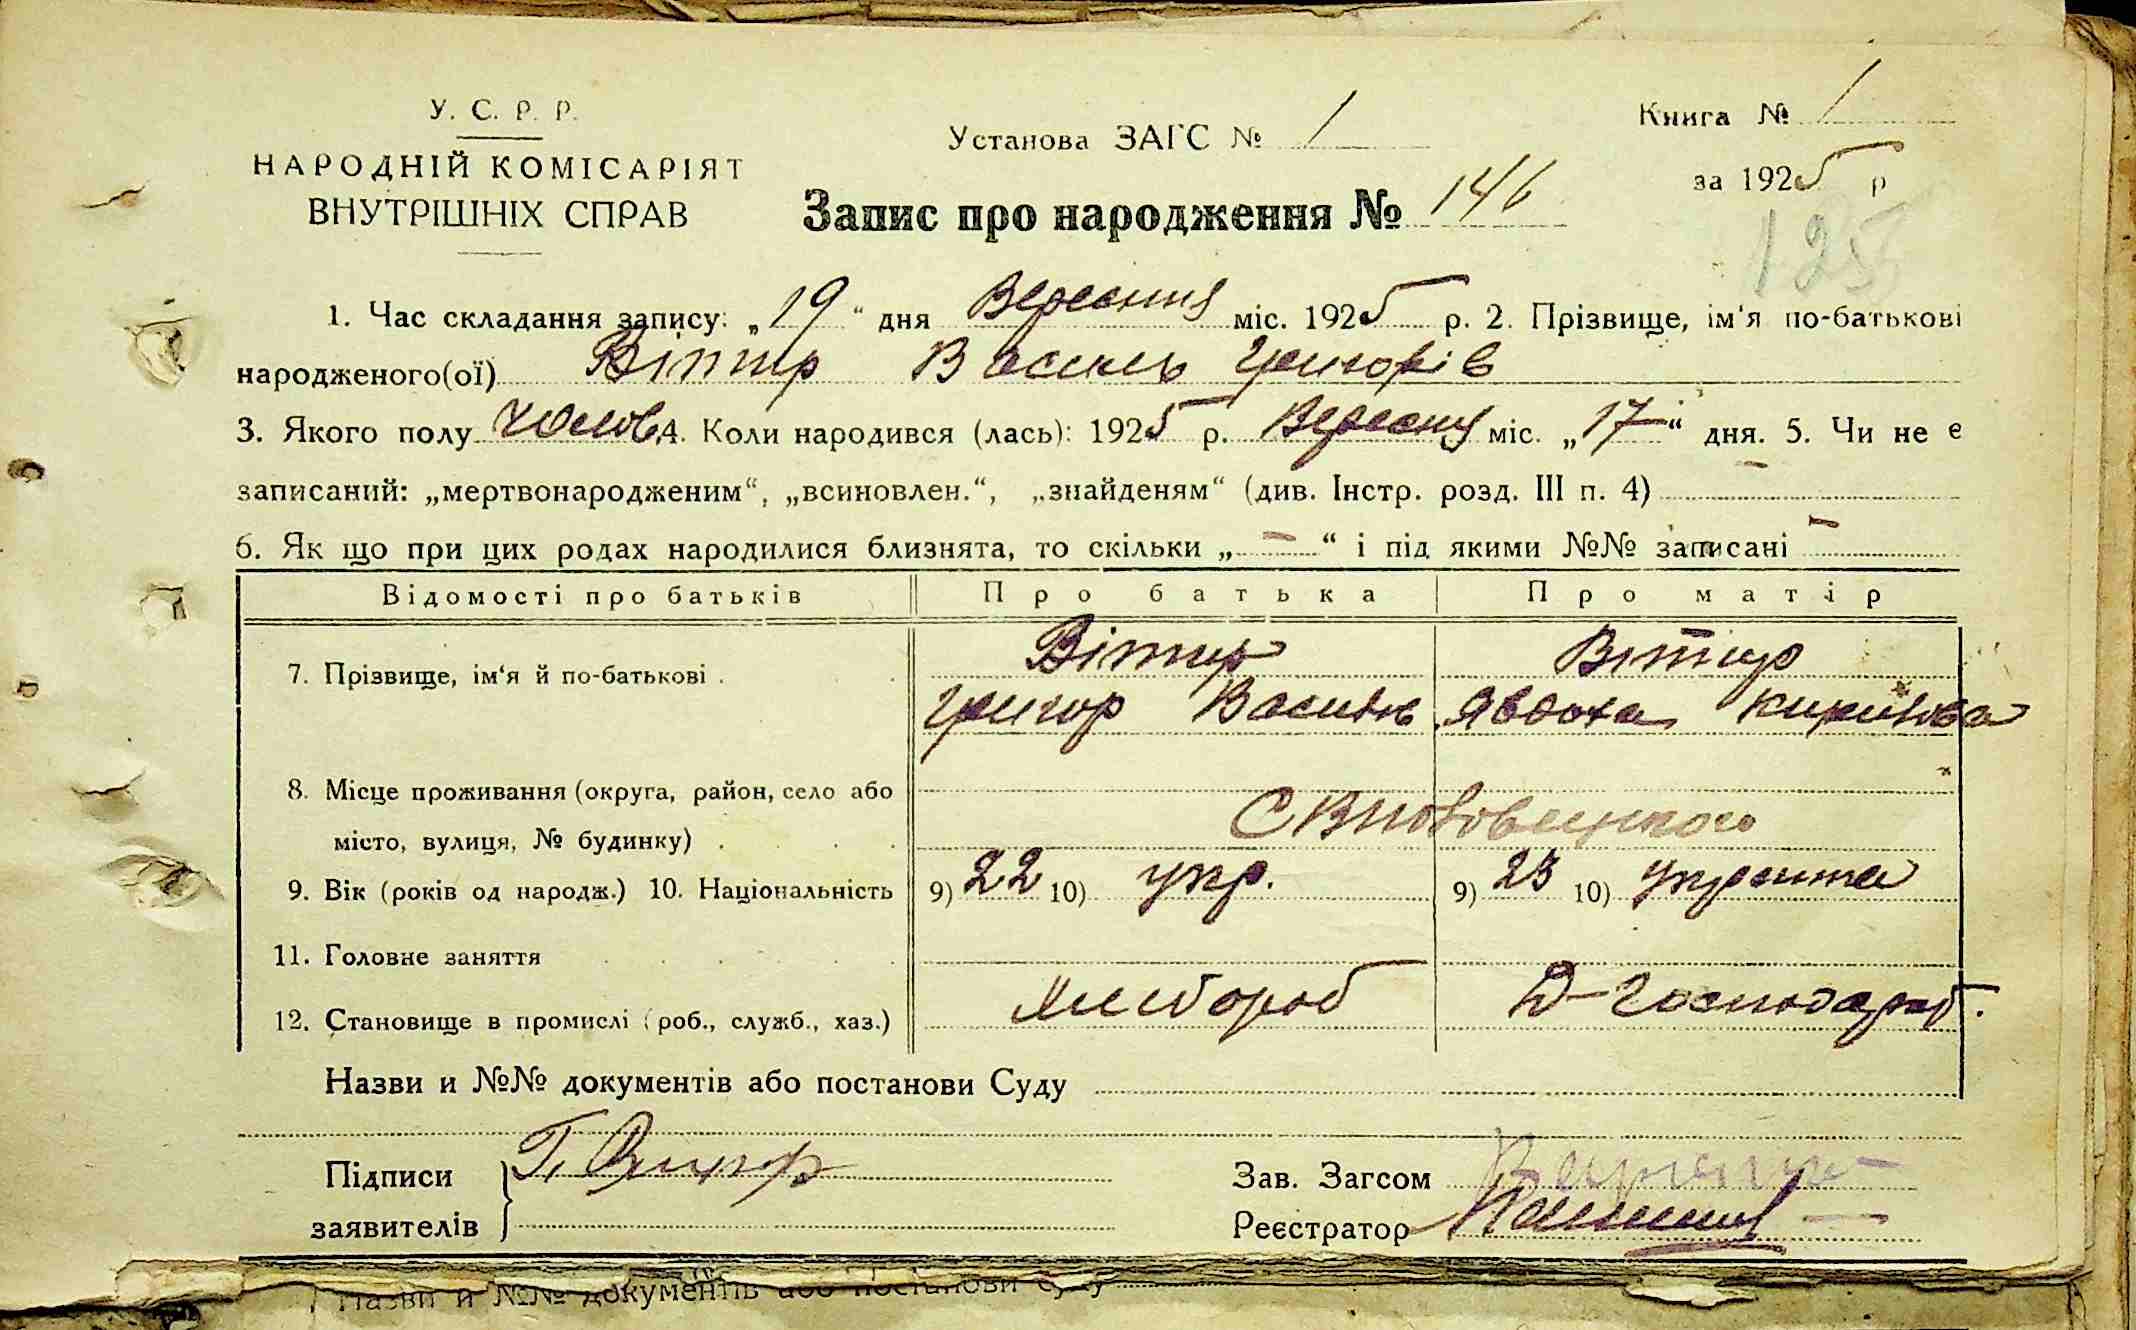 У. С. Р. Р.
НАРОДНІЙ КОМІСАРІЯТ
ВНУТРІШНІХ СПРАВ
Установа ЗАГС № 1
Книга № 1
за 1925 р
Запис про народження № 146
125
1. Час складання запису: „19“ дня Вересня міс. 1925 р. 2. Прізвище, ім'я по-батькові
народженого(ої) Вітир Василь Григорів
3. Якого полу чолов. 4. Коли народився (лась): 1925 р. Вересня міс. „17“ дня. 5. Чи не є
записаний: „мертвонародженим“, „всиновлен.“, „знайденям“ (див. Інстр. розд. III п. 4) —
6. Як що при цих родах народилися близнята, то скільки „—“ і під якими №№ записані —
Відомості про батьків Про батька Про матір
Вітир Вітир
7. Прізвище, ім'я й по-батькові
Григор Василів Явдоха Кирилова
8. Місце проживання (округа, район, село або
місто, вулиця, № будинку)
9. Вік (років од народж.) 10. Національність 9) 22 10) укр. 9) 23 10) Українка
11. Головне заняття
Хлібороб Д-Господар.
12. Становище в промислі (роб., служб., хаз.)
Назви и №№ документів або постанови Суду
Підписи Г.
заявителів
Зав. Загсом
Реєстратор
Назви и №№ документів або постанови Суду